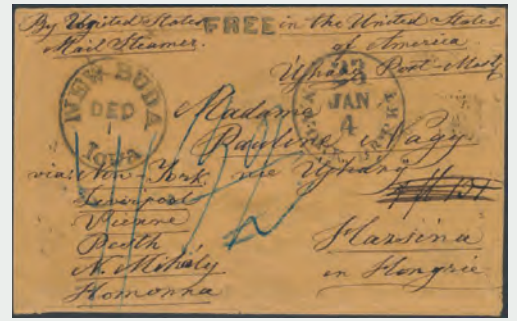 By United States
Mail Steamer.
FREE
in the United States
of America
Ujházy Post-Mast
NEW BUDA
DEC
1
Iowa
23
JAN
4
Madame
Pauline Nagy
née Ujházy
via: New-York
Liverpool
Vienne
Pesth
N. Mihály
Homonna
Hazsina
en Hongrie